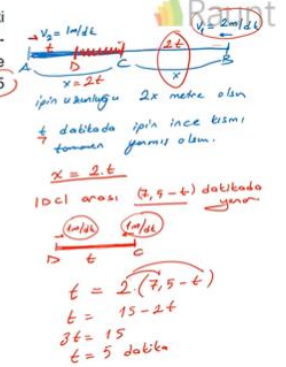 Raunt
V₂ = 1m/dk
V₁ = 2m/dk
t
2t
A D C B
x = 2t
x
5
ipin uzunluğu 2x metre olsun
t dakikada ipin ince kısmı
7
tamamen yanmış olsun.
x = 2.t
|DC| arası (7,5 - t) dakikada
yanar
1m/dk 1m/dk
D t C
t = 2.(7,5 - t)
t = 15 - 2t
3t = 15
t = 5 dakika